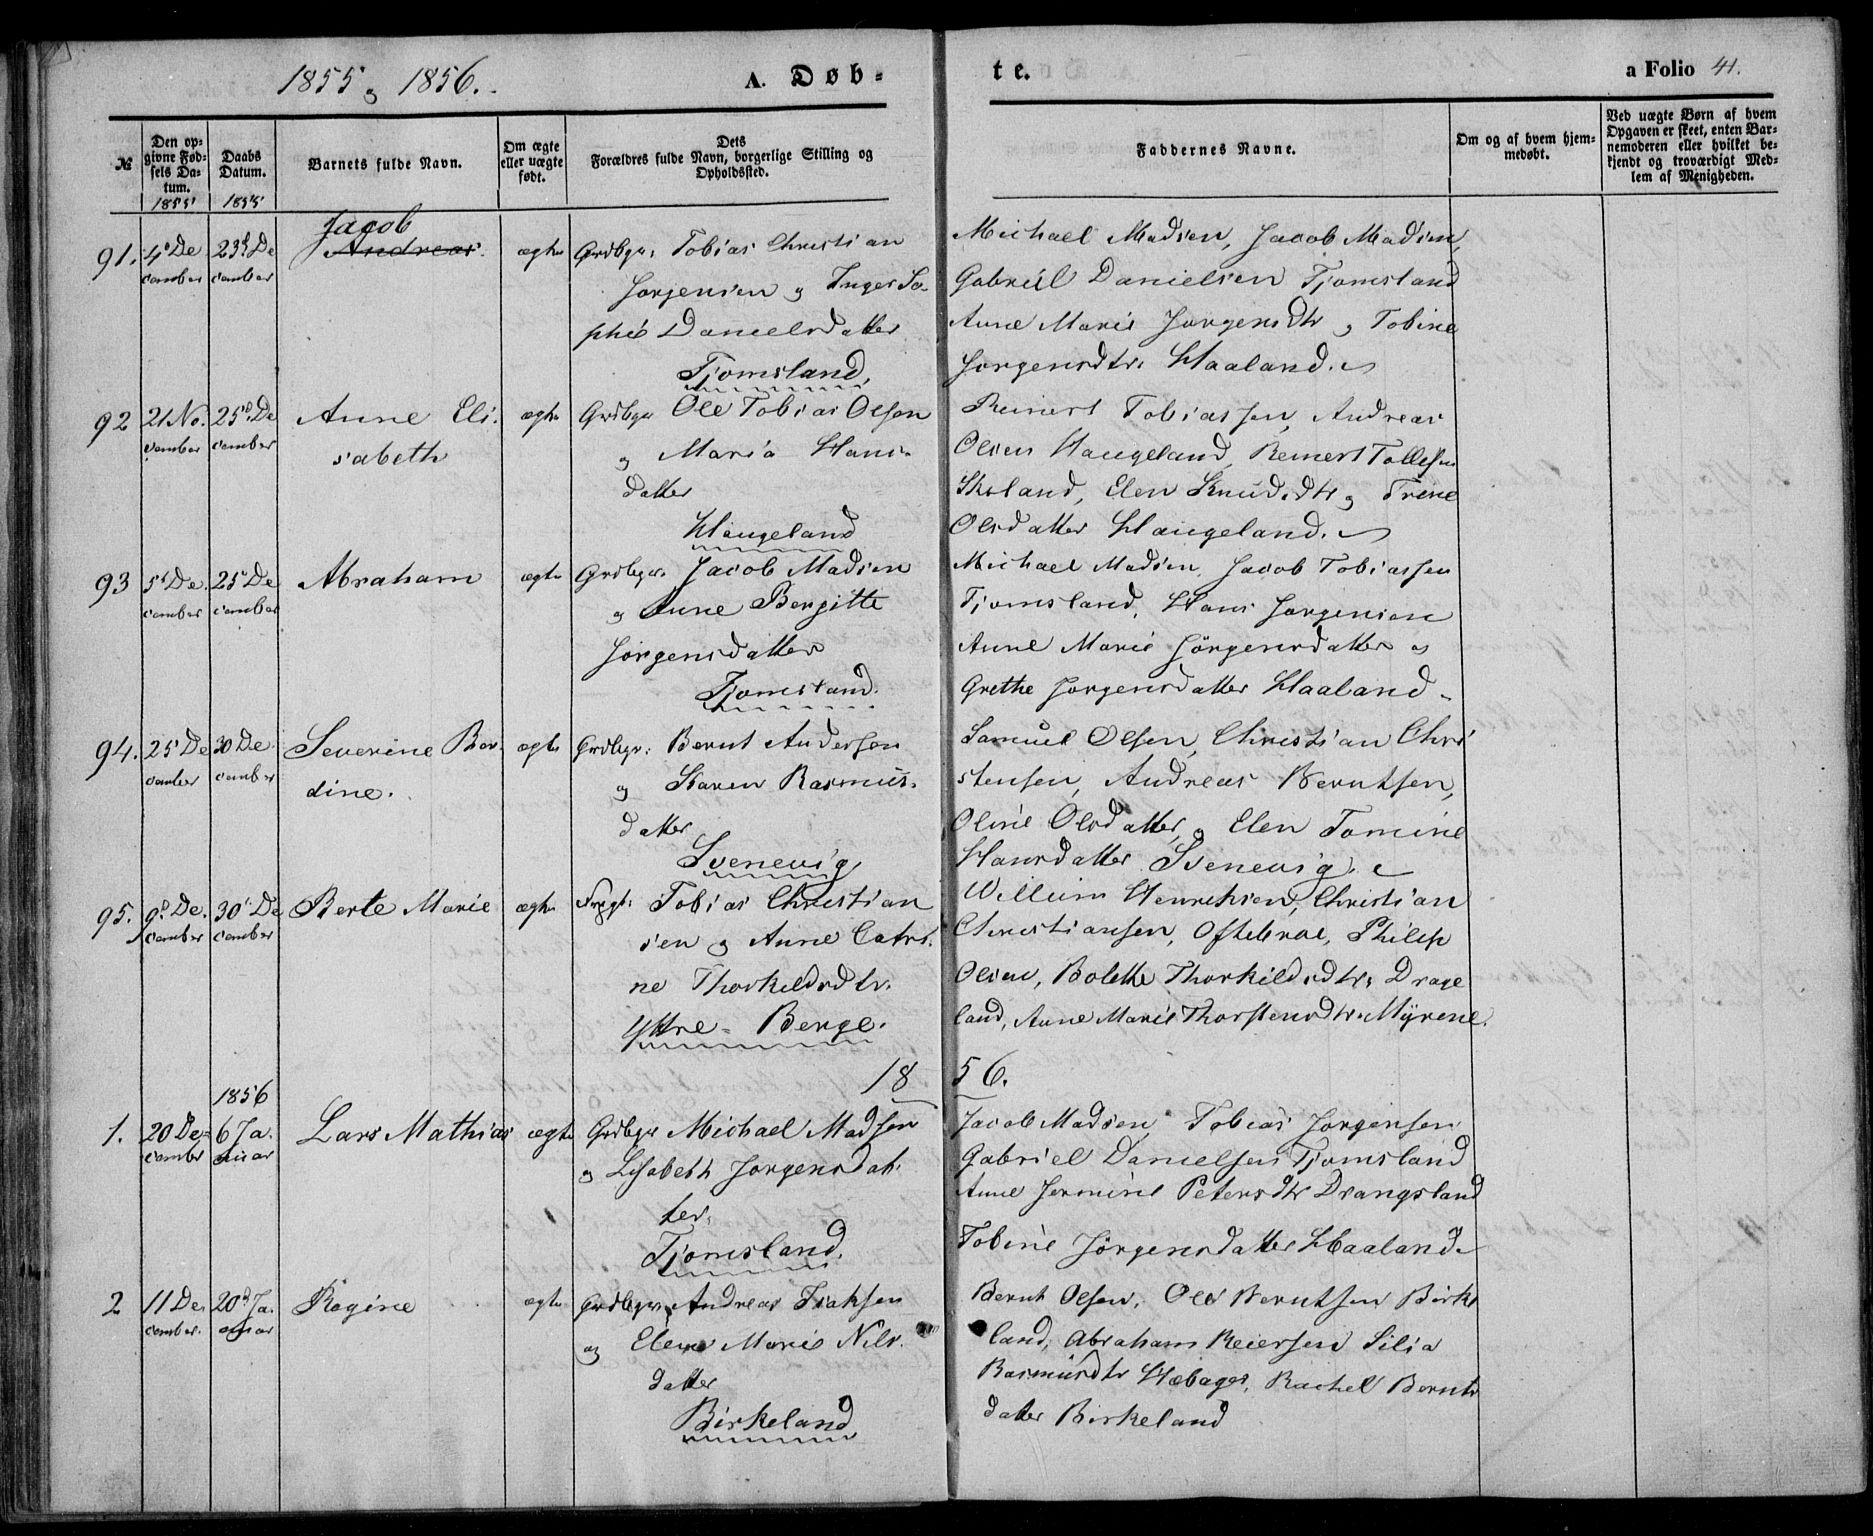 1855 og 1856.
A. Døb-
te.
a Folio 41.
№
Den op-
givne Fød-
sels Da-
tum.
1855
Daabs
Datum.
1855
Barnets fulde Navn.
Om ægte
eller uægte
født.
Dets
Forældres fulde Navn, borgerlige Stilling og
Opholdssted.
Faddernes Navne.
Om og af hvem hjem-
medøbt.
Ved uægte Børn af hvem
Opgaven er skeet, enten Bar-
nemoderen eller hvilket be-
kjendt og troværdigt Med-
lem af Menigheden.
91.
4d De
cember
23d De
cember
Jacob
Andreas.
ægte
Grdbgr. Tobias Christian
Jørgensen og Inger So-
phie Danielsdatter
Tjomsland,
Michael Madsen, Jacob Madsen,
Gabriel Danielsen Tjomsland
Anne Marie Jørgensdtr og Tobine
Jørgensdtr. Haaland.
92
21 No.
vember
25d De
cember
Anne Eli-
sabeth
ægte
Grdbgr Ole Tobias Olsen
og Maria Hans-
datter
Haugeland
Reinert Tobiassen, Andreas
Olsen Haugeland, Reinert Tollefsen
Skoland, Elen Knudsdtr og Trine
Olsdatter Haugeland.
93
5t De.
cember
25 De
cember
Abraham
ægte
Grdbgr. Jacob Madsen
og Anne Bergitte
Jørgensdatter
Tjomsland.
Michael Madsen, Jacob Tobiassen
Tjomsland, Hans Jørgensen
Anne Marie Jørgensdatter og
Grethe Jørgensdatter Haaland.
94.
25 De
cember
30 De.
cember
Severine Ber-
dine.
ægte
Grdbgr: Bernt Andersen
og Karen Rasmus-
datter
Svenevig
Samuel Olsen, Christian Chri
stensen, Andreas Berntsen,
Oline Olsdatter, og Elen Tomine
Hansdatter Svenevig.
95.
9d De.
cember
30t De
cember
Berte Marie
ægte
Tobias Christian
sen og Anne Catri-
ne Thorkildsdtr.
Yttre-Berge.
Willum Henrichsen, Christian
Christiansen, Oftebroe, Philip
Olsen, Bolette Thorkildsdtr. Drage
land, Anne Marie Thorstensdtr. Myrene.
1856.
1856
1.
20 De-
cember
6 Ja.
nuar
Lars Mathias
ægte
Grdbgr Michael Madsen
og Lisabeth Jørgensdat-
ter,
Tjomsland.
Jacob Madsen, Tobias Jørgensen
Gabriel Danielsen Tjomsland
Anne Jermine Petersdtr Drangsland
Tobine Jørgensdatter Haaland.
2
11 De.
cember.
20d Ja.
nuar
Regine
ægte
Grdbgr Andreas Isaksen
og Elen Marie Nils-
datter
Birkeland
Bernt Olsen, Ole Berntsen Birke
land, Abraham Reiersen Silia
Rasmusdtr Hæbager, Rachel Bernts
datter Birkeland